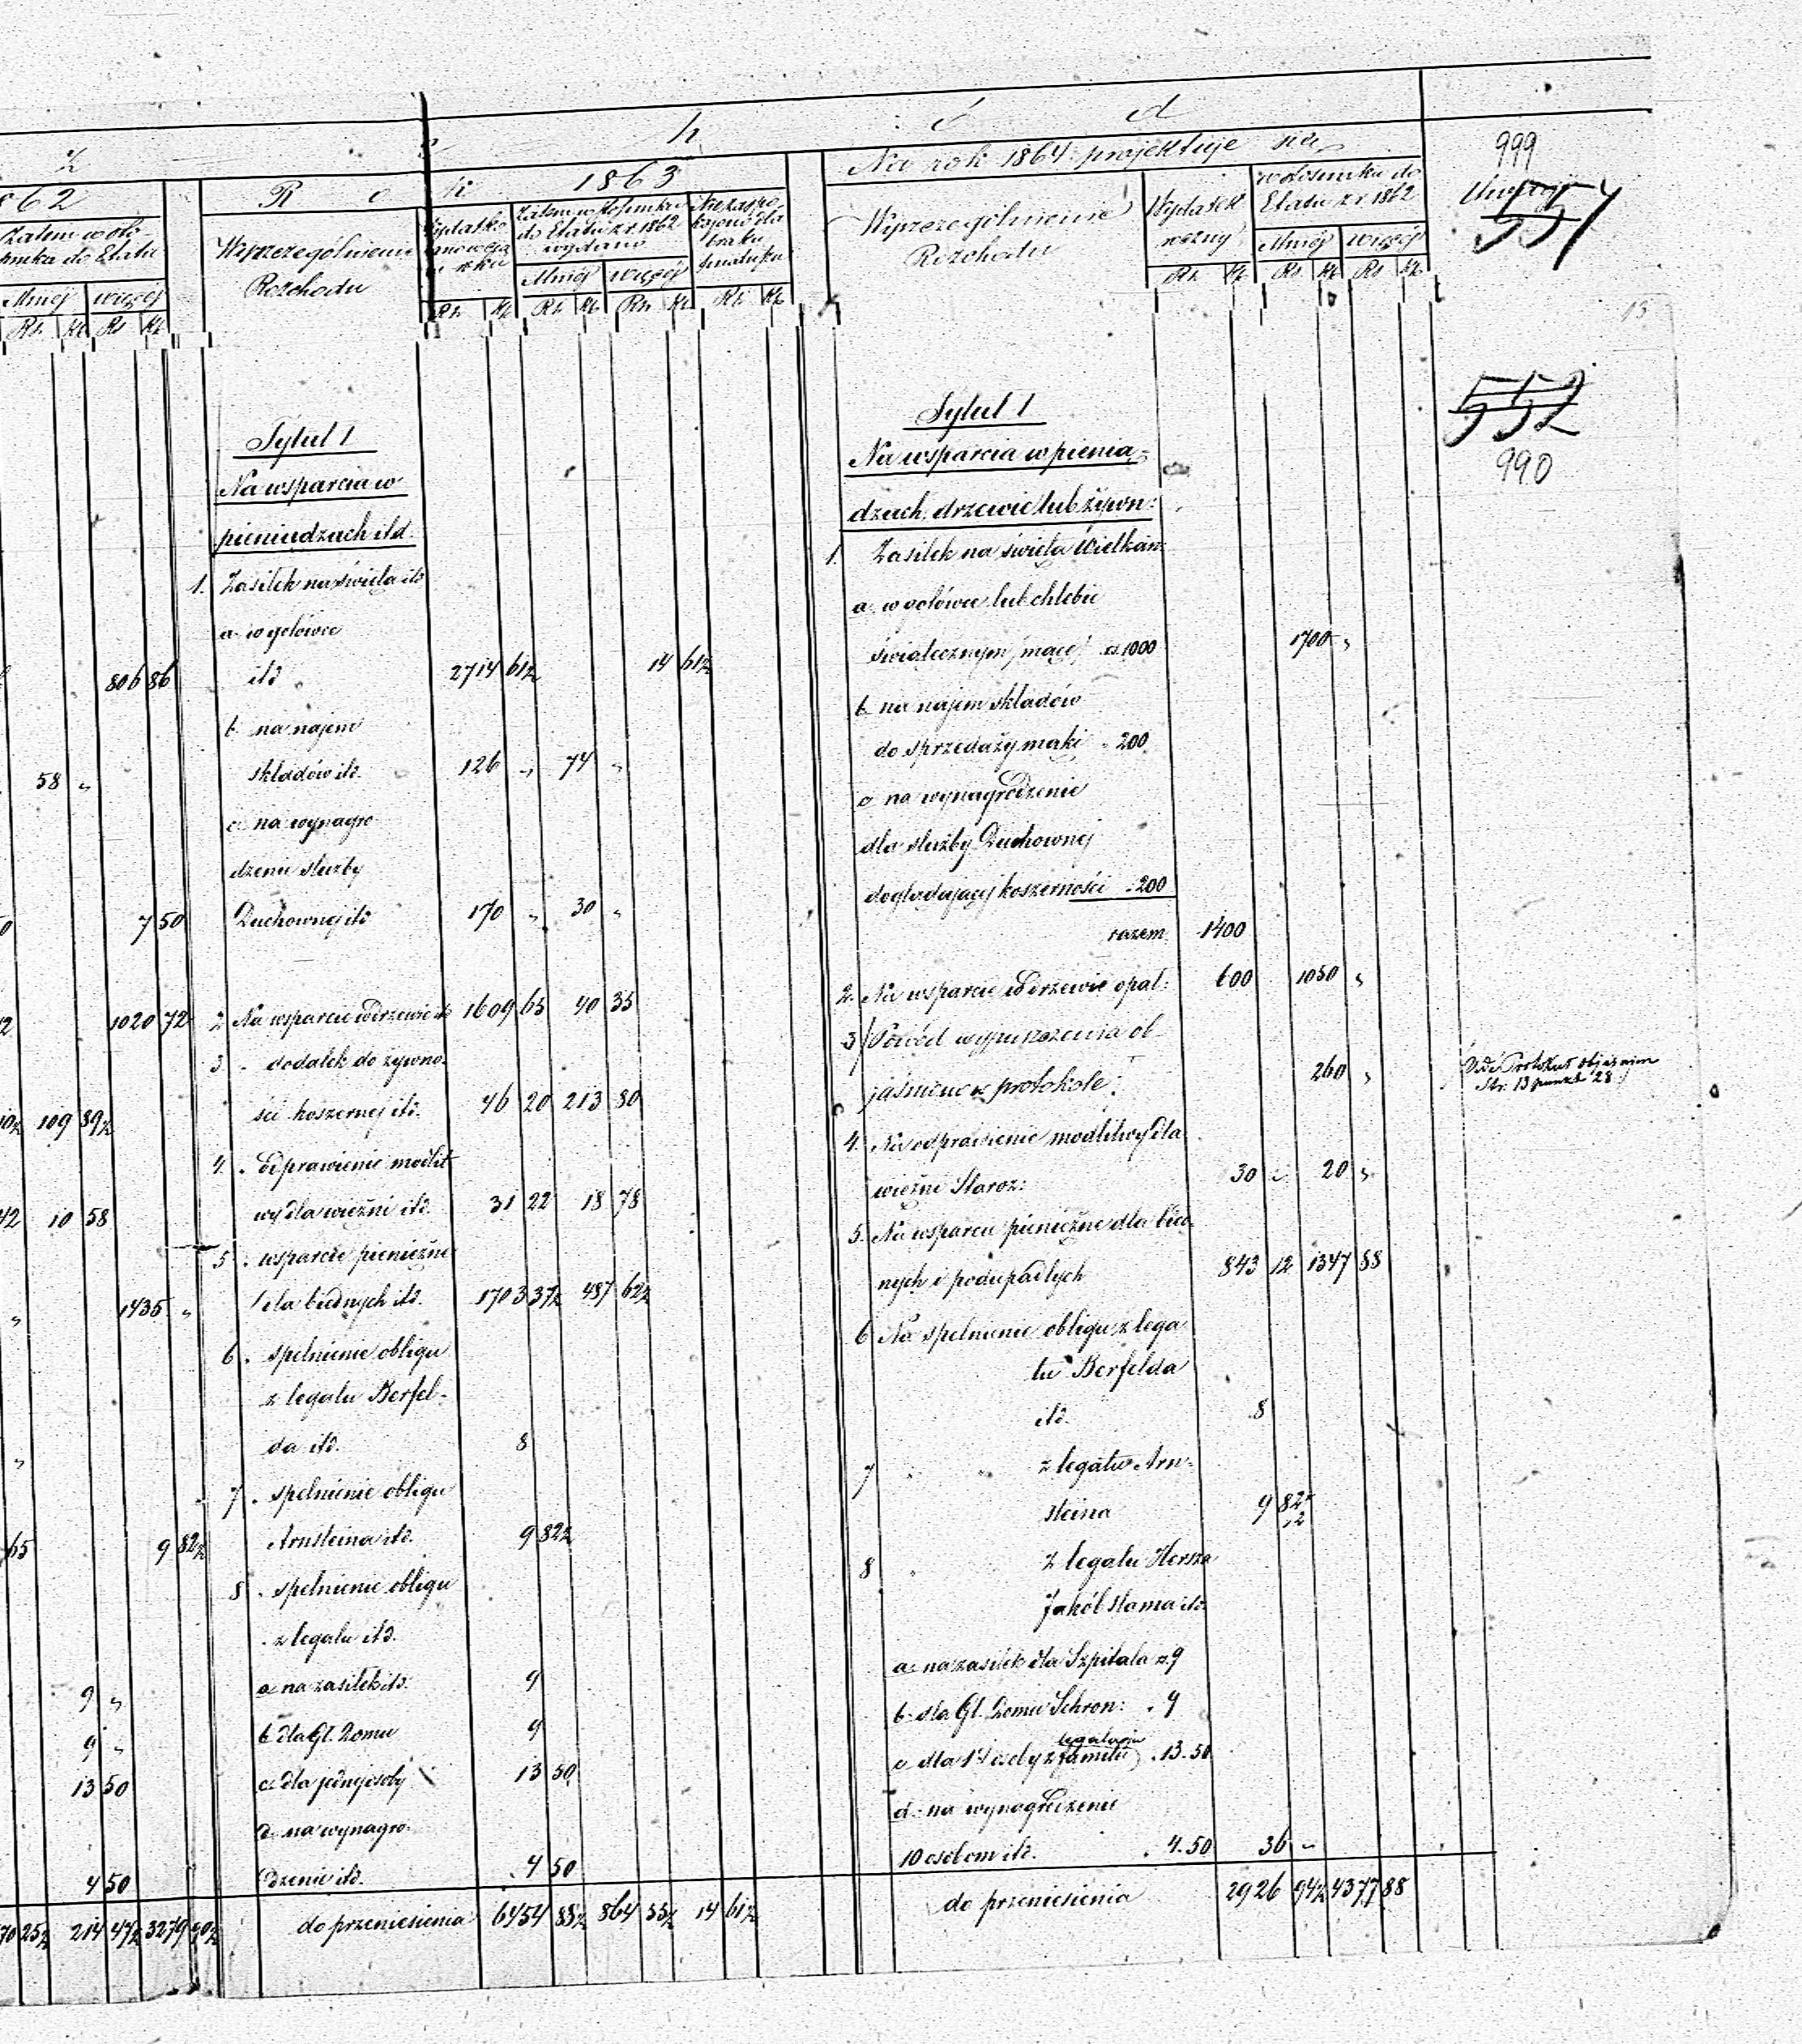 z h ó d
862
R o k 1863
Na rok 1864 projektuje się
999
Zatem w sto-
sunku do Etatu
Mniej więcej
Rs. K. Rs K.
Wyszczególnienie
Rozchodu
Zatem w stosunku
do Etatu z r. 1862
wydano
Mniej więcej
Rs. K. Rs. K. Rs. K. Rs. K.
Wyszczególnienie
Rozchodu
Wydatek
roczny
Rs. K.
w stosunku do
Etatu z r. 1862
Mniej więcej
Rs K. Rs K.
557
13
552
990
Tytuł 1
Na wsparcia w
pieniędzach itd.
1. Zasiłek na święta itd
a. w gotówce
806 86 itd 2714 61½ 14 61½
b. na najem
58 „ składów itd. 126 „ 74 „
c. na wynagro
dzenie służby
7 50 Duchownej itd 170 „ 30 „
1020 72 2 Na wsparcie w drzewie itd 1609 65 40 35
3 „ dodatek do żywno-
109 89½ ści koszernej itd. 46 20 213 80
4. „ odprawienie modlit
42 10 58 wy dla więźni itd. 31 22 18 78
5 „ wsparcie pieniężne
„ 1435 „ dla biednych itd. 1703 37½ 487 62½
6 „ spełnienie obligu
z legatu Berfel-
„ da itd. 8
7 „ spełnienie obligu
65 9 82½ Arnsteina itd. 9 82½
8 „ spełnienie obligu
z legatu itd.
9 „ a. na zasiłek itd. 9
9 „ b. dla Gł. Domu 9
13 50 c. dla jednej osoby 13 50
d. na wynagro-
4 50 dzenie itd. 4 50
70 25½ 214 47½ 3279 90½ do przeniesienia 6454 88½ 864 55½ 14 61½
Tytuł 1
Na wsparcia w pienią-
dzach, drzewie lub żywn:
1. Zasiłek na święta Wielkan:
a. w gotówce lub chlebie
świątecznym /macy/ rs. 1000 1700 „
b. na najem składów
do sprzedaży mąki „ 200
c. na wynagrodzenie
dla służby Duchownej
doglądającej koszerności „ 200
razem 1400
2. Na wsparcie w drzewie opał: 600 1050 „
3/ Powód wypuszczenia ob-
jaśniono w protokole. 260 „ Vide Protokuł objaśnien
Str. 13 punkt 28
4. Na odprawienie modlitwy dla
więźni Staroz: 30 „ 20 „
5. Na wsparcie pieniężne dla bied-
nych i podupadłych 843 12 1347 88
6 Na spełnienie obligu z lega
tu Berfelda
itd. 8
7 „ „ z legatu Arn-
steina 9 82½
8 „ z legatu Hersza
Jakób Stama itd.
a. na zasiłek dla Szpitala rs. 9
b. dla Gł. Domu Schron: „ 9
c. dla 1 osoby z familii legatora „ 13.50
d. na wynagrodzenie
10 osobom itd. „ 4.50 36 „
do przeniesienia 2926 94½ 4377 88